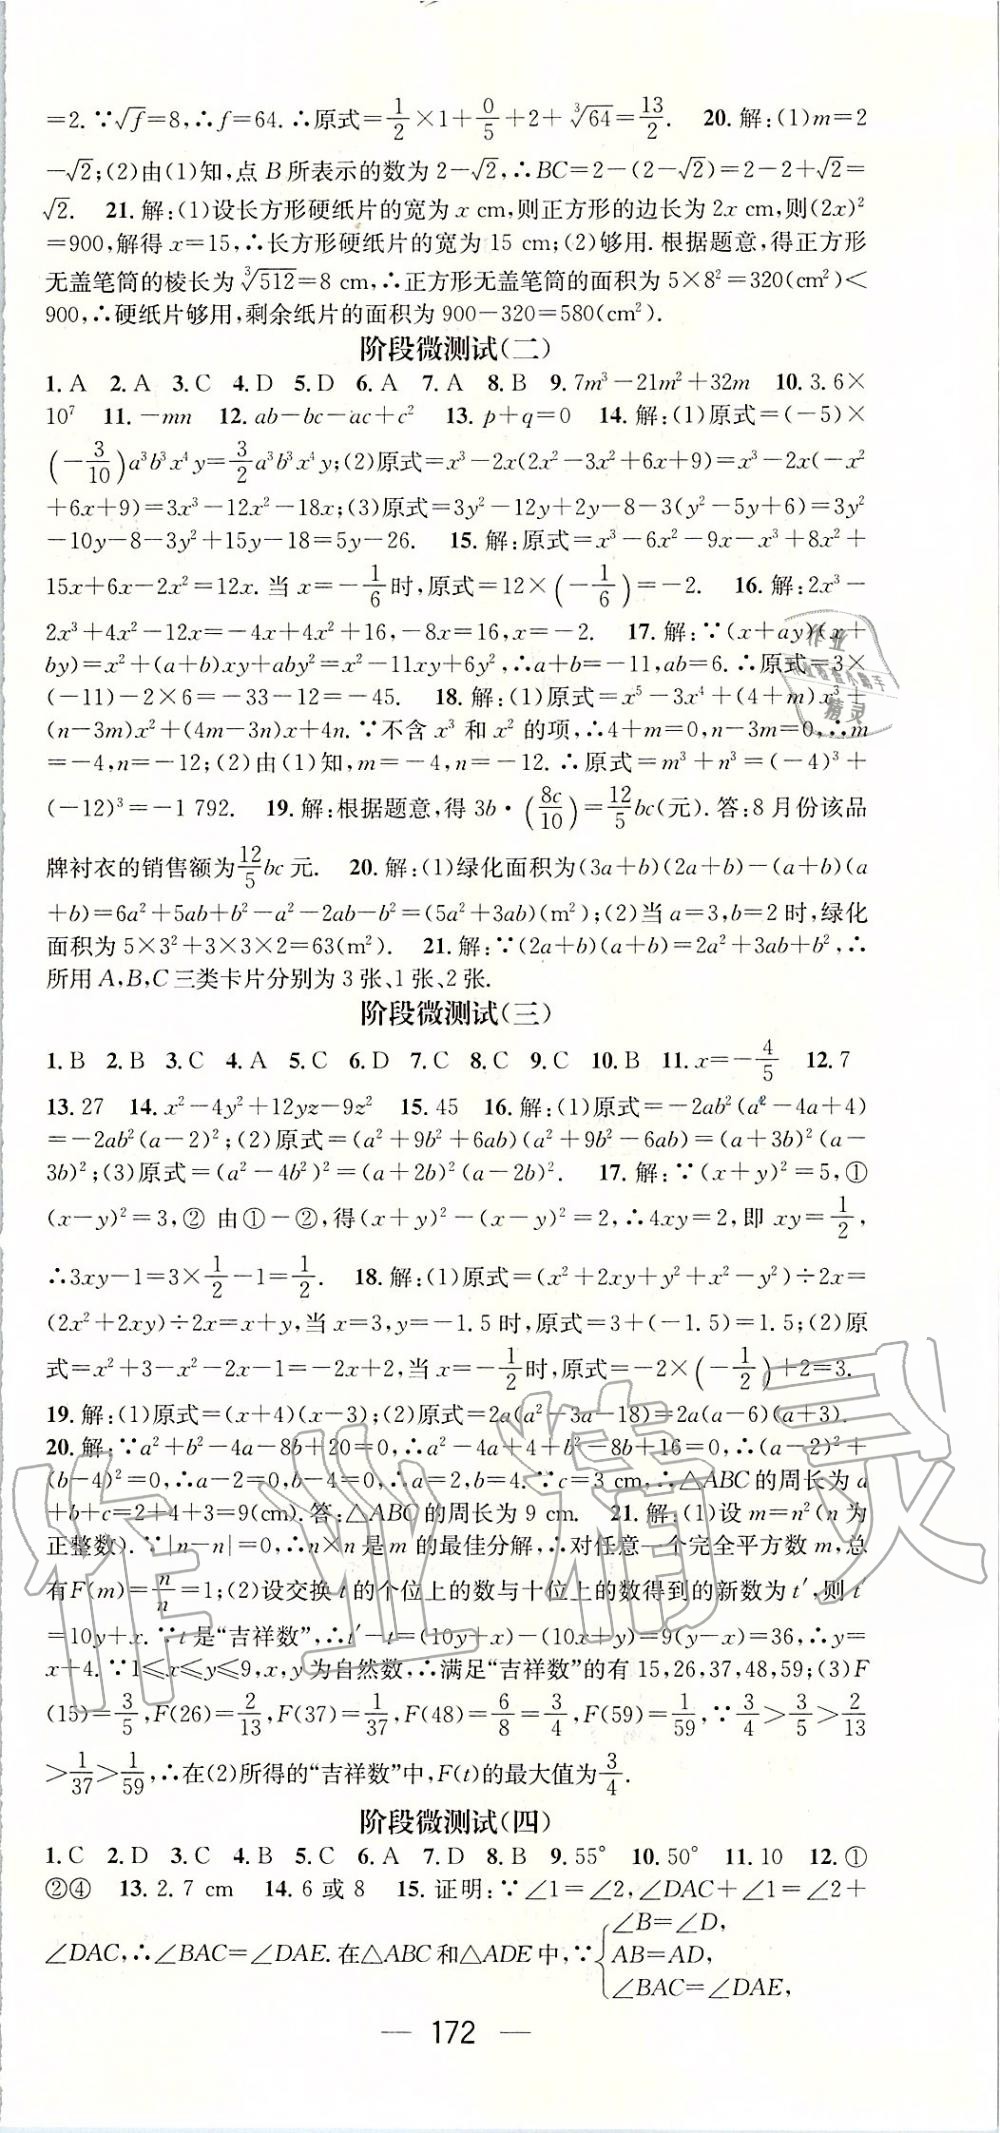 =2.∵√f=8,∴f=64.∴原式=1/2×1+0/5+2+∛64=13/2. 20.解:(1)m=2
-√2;(2)由(1)知,点B所表示的数为2-√2,∴BC=2-(2-√2)=2-2+√2=
√2. 21.解:(1)设长方形硬纸片的宽为x cm,则正方形的边长为2x cm,则(2x)²
=900,解得x=15,∴长方形硬纸片的宽为15 cm;(2)够用.根据题意,得正方形
无盖笔筒的棱长为∛512=8 cm,∴正方形无盖笔筒的面积为5×8²=320(cm²)<
900,∴硬纸片够用,剩余纸片的面积为900-320=580(cm²).
阶段微测试(二)
1.A 2.A 3.C 4.D 5.D 6.A 7.A 8.B 9.7m³-21m²+32m 10.3.6×
10⁷ 11.-mn 12.ab-bc-ac+c² 13.p+q=0 14.解:(1)原式=(-5)×
(-3/10)a³b³x⁴y=3/2a³b³x⁴y;(2)原式=x³-2x(2x²-3x²+6x+9)=x³-2x(-x²
+6x+9)=3x³-12x²-18x;(3)原式=3y²-12y+2y-8-3(y²-5y+6)=3y²
-10y-8-3y²+15y-18=5y-26. 15.解:原式=x³-6x²-9x-x³+8x²+
15x+6x-2x²=12x.当x=-1/6时,原式=12×(-1/6)=-2. 16.解:2x³-
2x³+4x²-12x=-4x+4x²+16,-8x=16,x=-2. 17.解:∵(x+ay)(x+
by)=x²+(a+b)xy+aby²=x²-11xy+6y²,∴a+b=-11,ab=6.∴原式=3×
(-11)-2×6=-33-12=-45. 18.解:(1)原式=x⁵-3x⁴+(4+m)x³+
(n-3m)x²+(4m-3n)x+4n.∵不含x³和x²的项,∴4+m=0,n-3m=0,∴m
=-4,n=-12;(2)由(1)知,m=-4,n=-12.∴原式=m³+n³=(-4)³+
(-12)³=-1 792. 19.解:根据题意,得3b·(8c/10)=12/5bc(元).答:8月份该品
牌衬衣的销售额为12/5bc元. 20.解:(1)绿化面积为(3a+b)(2a+b)-(a+b)(a
+b)=6a²+5ab+b²-a²-2ab-b²=(5a²+3ab)(m²);(2)当a=3,b=2时,绿化
面积为5×3²+3×3×2=63(m²). 21.解:∵(2a+b)(a+b)=2a²+3ab+b²,∴
所用A,B,C三类卡片分别为3张、1张、2张.
阶段微测试(三)
1.B 2.B 3.C 4.A 5.C 6.D 7.C 8.C 9.C 10.B 11.x=-4/5 12.7
13.27 14.x²-4y²+12yz-9z² 15.45 16.解:(1)原式=-2ab²(a²-4a+4)
=-2ab²(a-2)²;(2)原式=(a²+9b²+6ab)(a²+9b²-6ab)=(a+3b)²(a-
3b)²;(3)原式=(a²-4b²)²=(a+2b)²(a-2b)². 17.解:∵(x+y)²=5,①
(x-y)²=3,② 由①-②,得(x+y)²-(x-y)²=2,∴4xy=2,即xy=1/2,
∴3xy-1=3×1/2-1=1/2. 18.解:(1)原式=(x²+2xy+y²+x²-y²)÷2x=
(2x²+2xy)÷2x=x+y,当x=3,y=-1.5时,原式=3+(-1.5)=1.5;(2)原
式=x²+3-x²-2x-1=-2x+2,当x=-1/2时,原式=-2×(-1/2)+2=3.
19.解:(1)原式=(x+4)(x-3);(2)原式=2a(a²-3a-18)=2a(a-6)(a+3).
20.解:∵a²+b²-4a-8b+20=0,∴a²-4a+4+b²-8b+16=0,∴(a-2)²+
(b-4)²=0,∴a-2=0,b-4=0,∴a=2,b=4.∵c=3 cm,∴△ABC的周长为a
+b+c=2+4+3=9(cm).答:△ABC的周长为9 cm. 21.解:(1)设m=n²(n为
正整数).∵|n-n|=0,∴n×n是m的最佳分解,∴对任意一个完全平方数m,总
有F(m)=n/n=1;(2)设交换t的个位上的数与十位上的数得到的新数为t′,则t′
=10y+x.∵t是“吉祥数”,∴t′-t=(10y+x)-(10x+y)=9(y-x)=36,∴y=
x+4.∵1≤x≤y≤9,x,y为自然数,∴满足“吉祥数”的有15,26,37,48,59;(3)F
(15)=3/5,F(26)=2/13,F(37)=1/37,F(48)=6/8=3/4,F(59)=1/59,∵3/4>3/5>2/13
>1/37>1/59,∴在(2)所得的“吉祥数”中,F(t)的最大值为3/4.
阶段微测试(四)
1.C 2.D 3.C 4.B 5.C 6.A 7.D 8.B 9.55° 10.50° 11.10 12.①
②④ 13.2.7 cm 14.6或8 15.证明:∵∠1=∠2,∠DAC+∠1=∠2+
∠DAC,∴∠BAC=∠DAE.在△ABC和△ADE中,∵{∠B=∠D,
AB=AD,
∠BAC=∠DAE,
— 172 —
作业精灵
作业
精灵